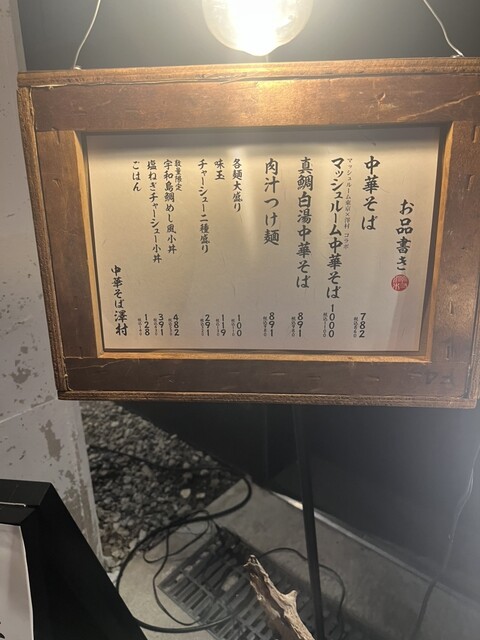 お品書き
中華そば 782
マッシュルーム東京×澤村 コラボ
マッシュルーム中華そば 1000
真鯛白湯中華そば 891
肉汁つけ麺 891
各麺大盛り 100
味玉 119
チャーシュー二種盛り 291
数量限定
宇和島鯛めし風小丼 482
塩ねぎチャーシュー小丼 391
ごはん 128
中華そば 澤村